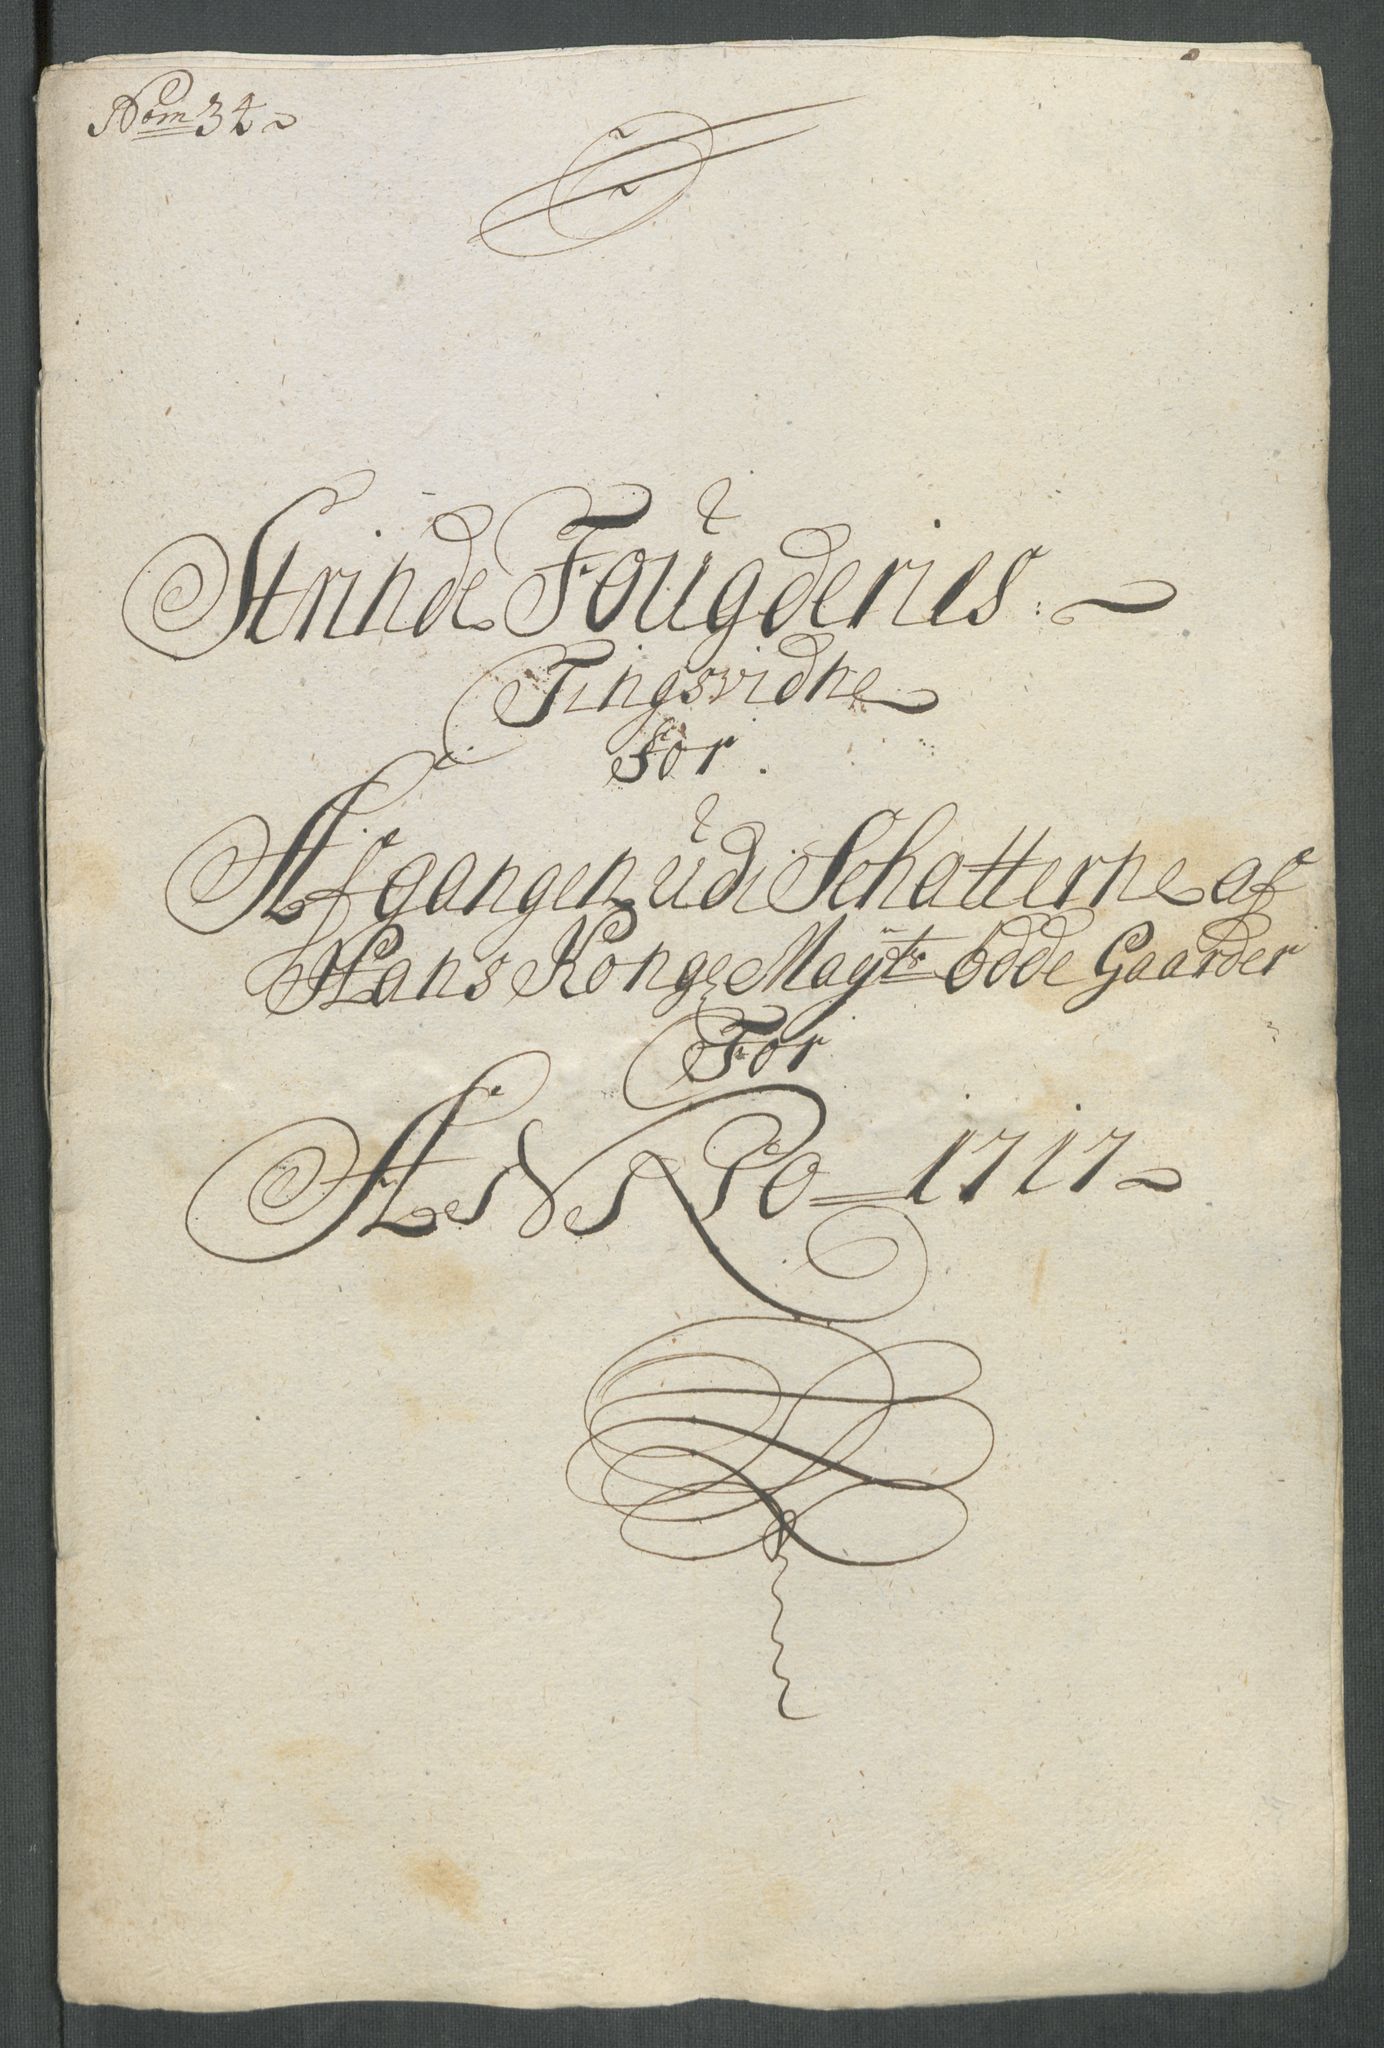 Nom 34
Strinde Fougderies
Tingsvidne
for
Afgangen udi Schatterne af
Hans Konge Mayts ödde Gaarder
For
ANNO 1717